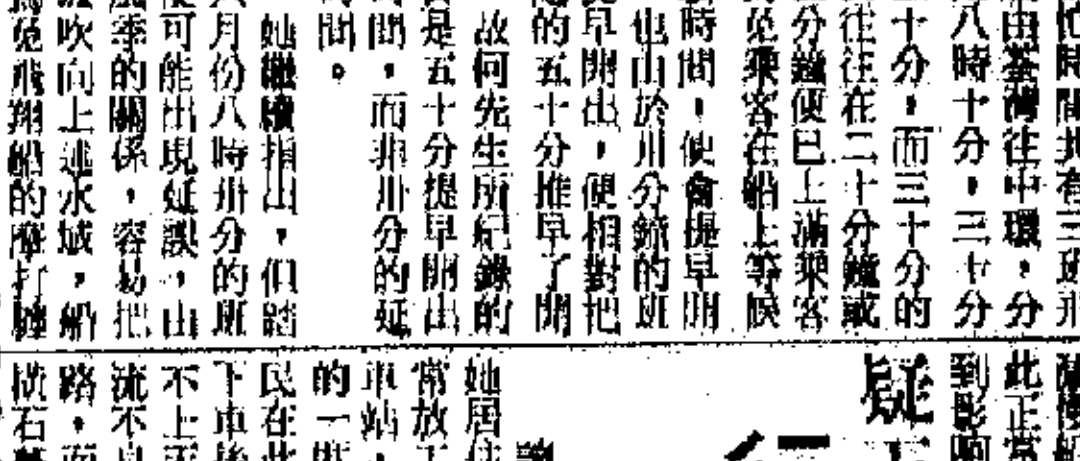 忙時間共有三班飛
由荃灣往中環，分
八時十分，三十分
十分，而三十分的
往往在二十分鐘或
分鐘便已上滿乘客
免乘客在船上等候
時間，便會提早開
也由於卅分鐘的班
早開出，便相對把
的五十分推早了開
故何先生所紀錄的
是五十分提早開出
間，而非卅分的延
間。
她繼續指出，但踏
月份八時卅分的班
可能出現延誤，由
季的關係，容易把
吹向上述水域，船
免飛翔船的摩打纏
此正常
到影响
疑
她居住
常放工
車站，
的一
民在此
下車後
不上
流不息
路，而
橫石